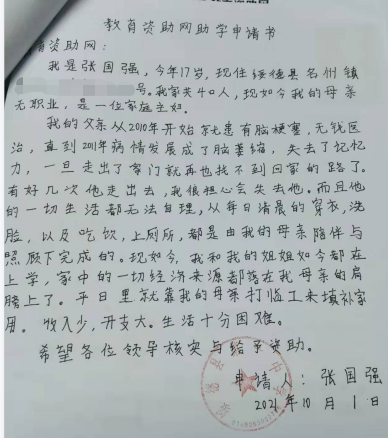 教育资助网助学申请书
资助网:
我是张国强,今年17岁,现住绥德县名州镇
号。我家共4口人,现如今我的母亲
无职业,是一位家庭主妇。
我的父亲从2010年开始就患有脑梗塞,无钱医
治,直到2011年病情发展成了脑萎缩,失去了记忆
力,一旦走出了家门就再也找不到回家的路了。
有好几次他走出去,我很担心会失去他。而且他
的一切生活都无法自理,从每日清晨的穿衣,洗
脸,以及吃饮,上厕所,都是由我的母亲陪伴与
照顾下完成的。现如今,我和我的姐姐如今都在
上学,家中的一切经济来源都落在我母亲的肩
膀上了。平日里就靠我的母亲打临工来填补家
用。收入少,开支大。生活十分困难。
希望各位领导核实与给予资助。
申请人:张国强
2021年10月1日